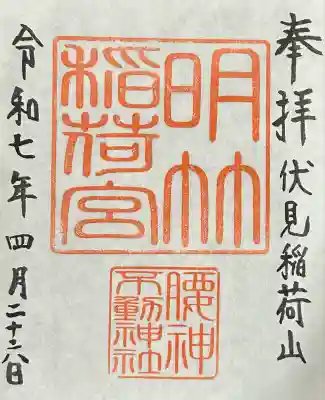 奉拝 伏見稲荷山
明竹
稲荷宮
腰神
不動神社
令和七年 四月二十六日